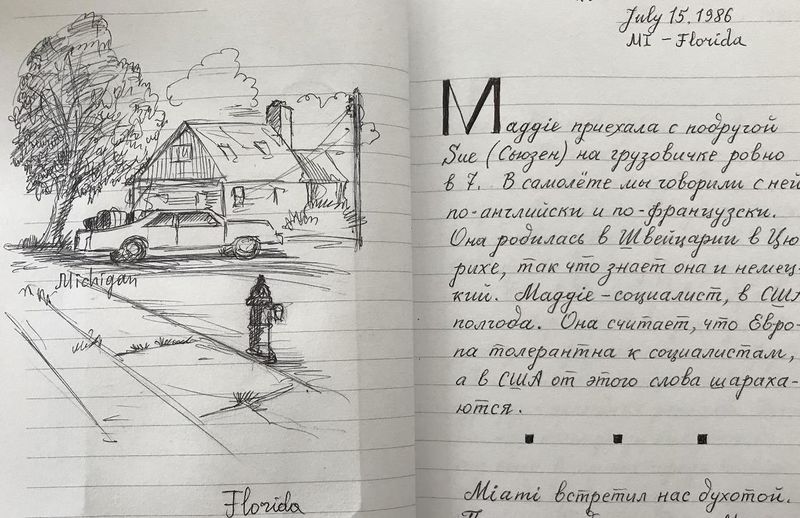 Michigan
Florida
July 15. 1986
MI – Florida
Maggie приехала с подругой
Sue (Сьюзен) на грузовичке ровно
в 7. В самолёте мы говорили с ней
по-английски и по-французски.
Она родилась в Швейцарии в Цю-
рихе, так что знает она и немец-
кий. Maggie – социалист, в США
полгода. Она считает, что Евро-
па толерантна к социалистам,
а в США от этого слова шараха-
ются.
Miami встретил нас духотой.